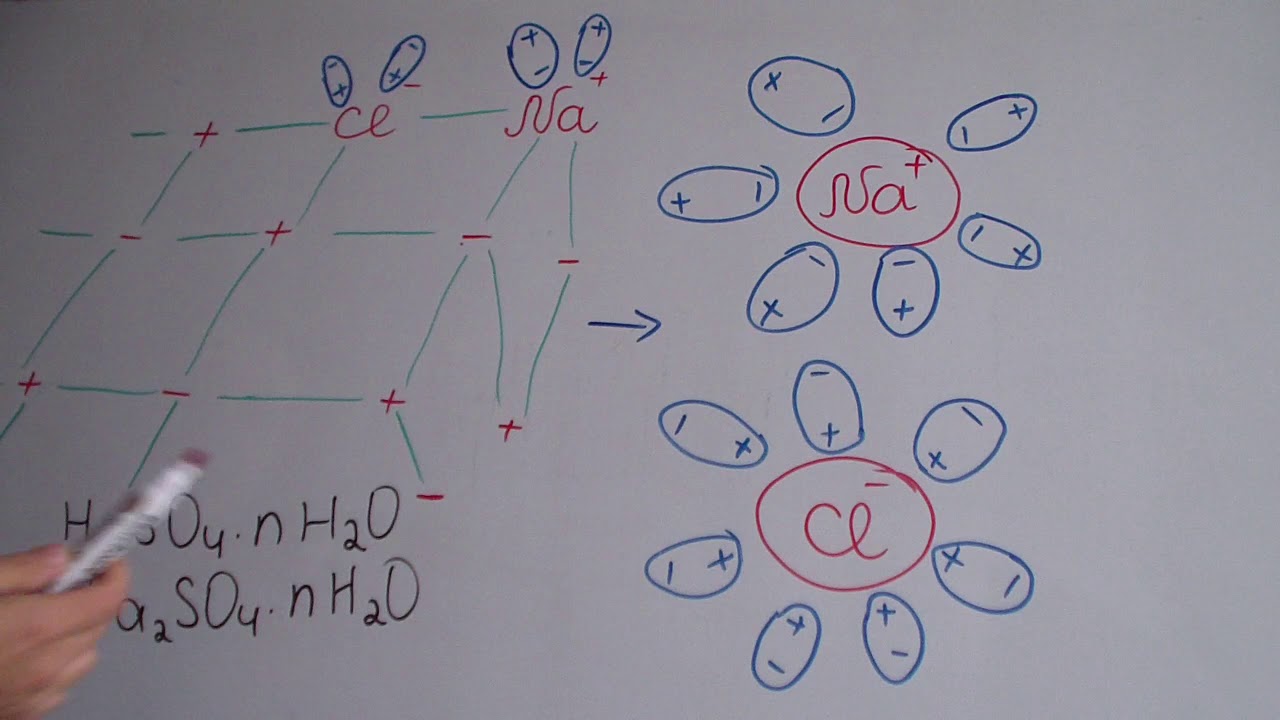 Cl⁻ Na⁺
Na⁺
Cl⁻
H SO₄·nH₂O
a₂SO₄·nH₂O